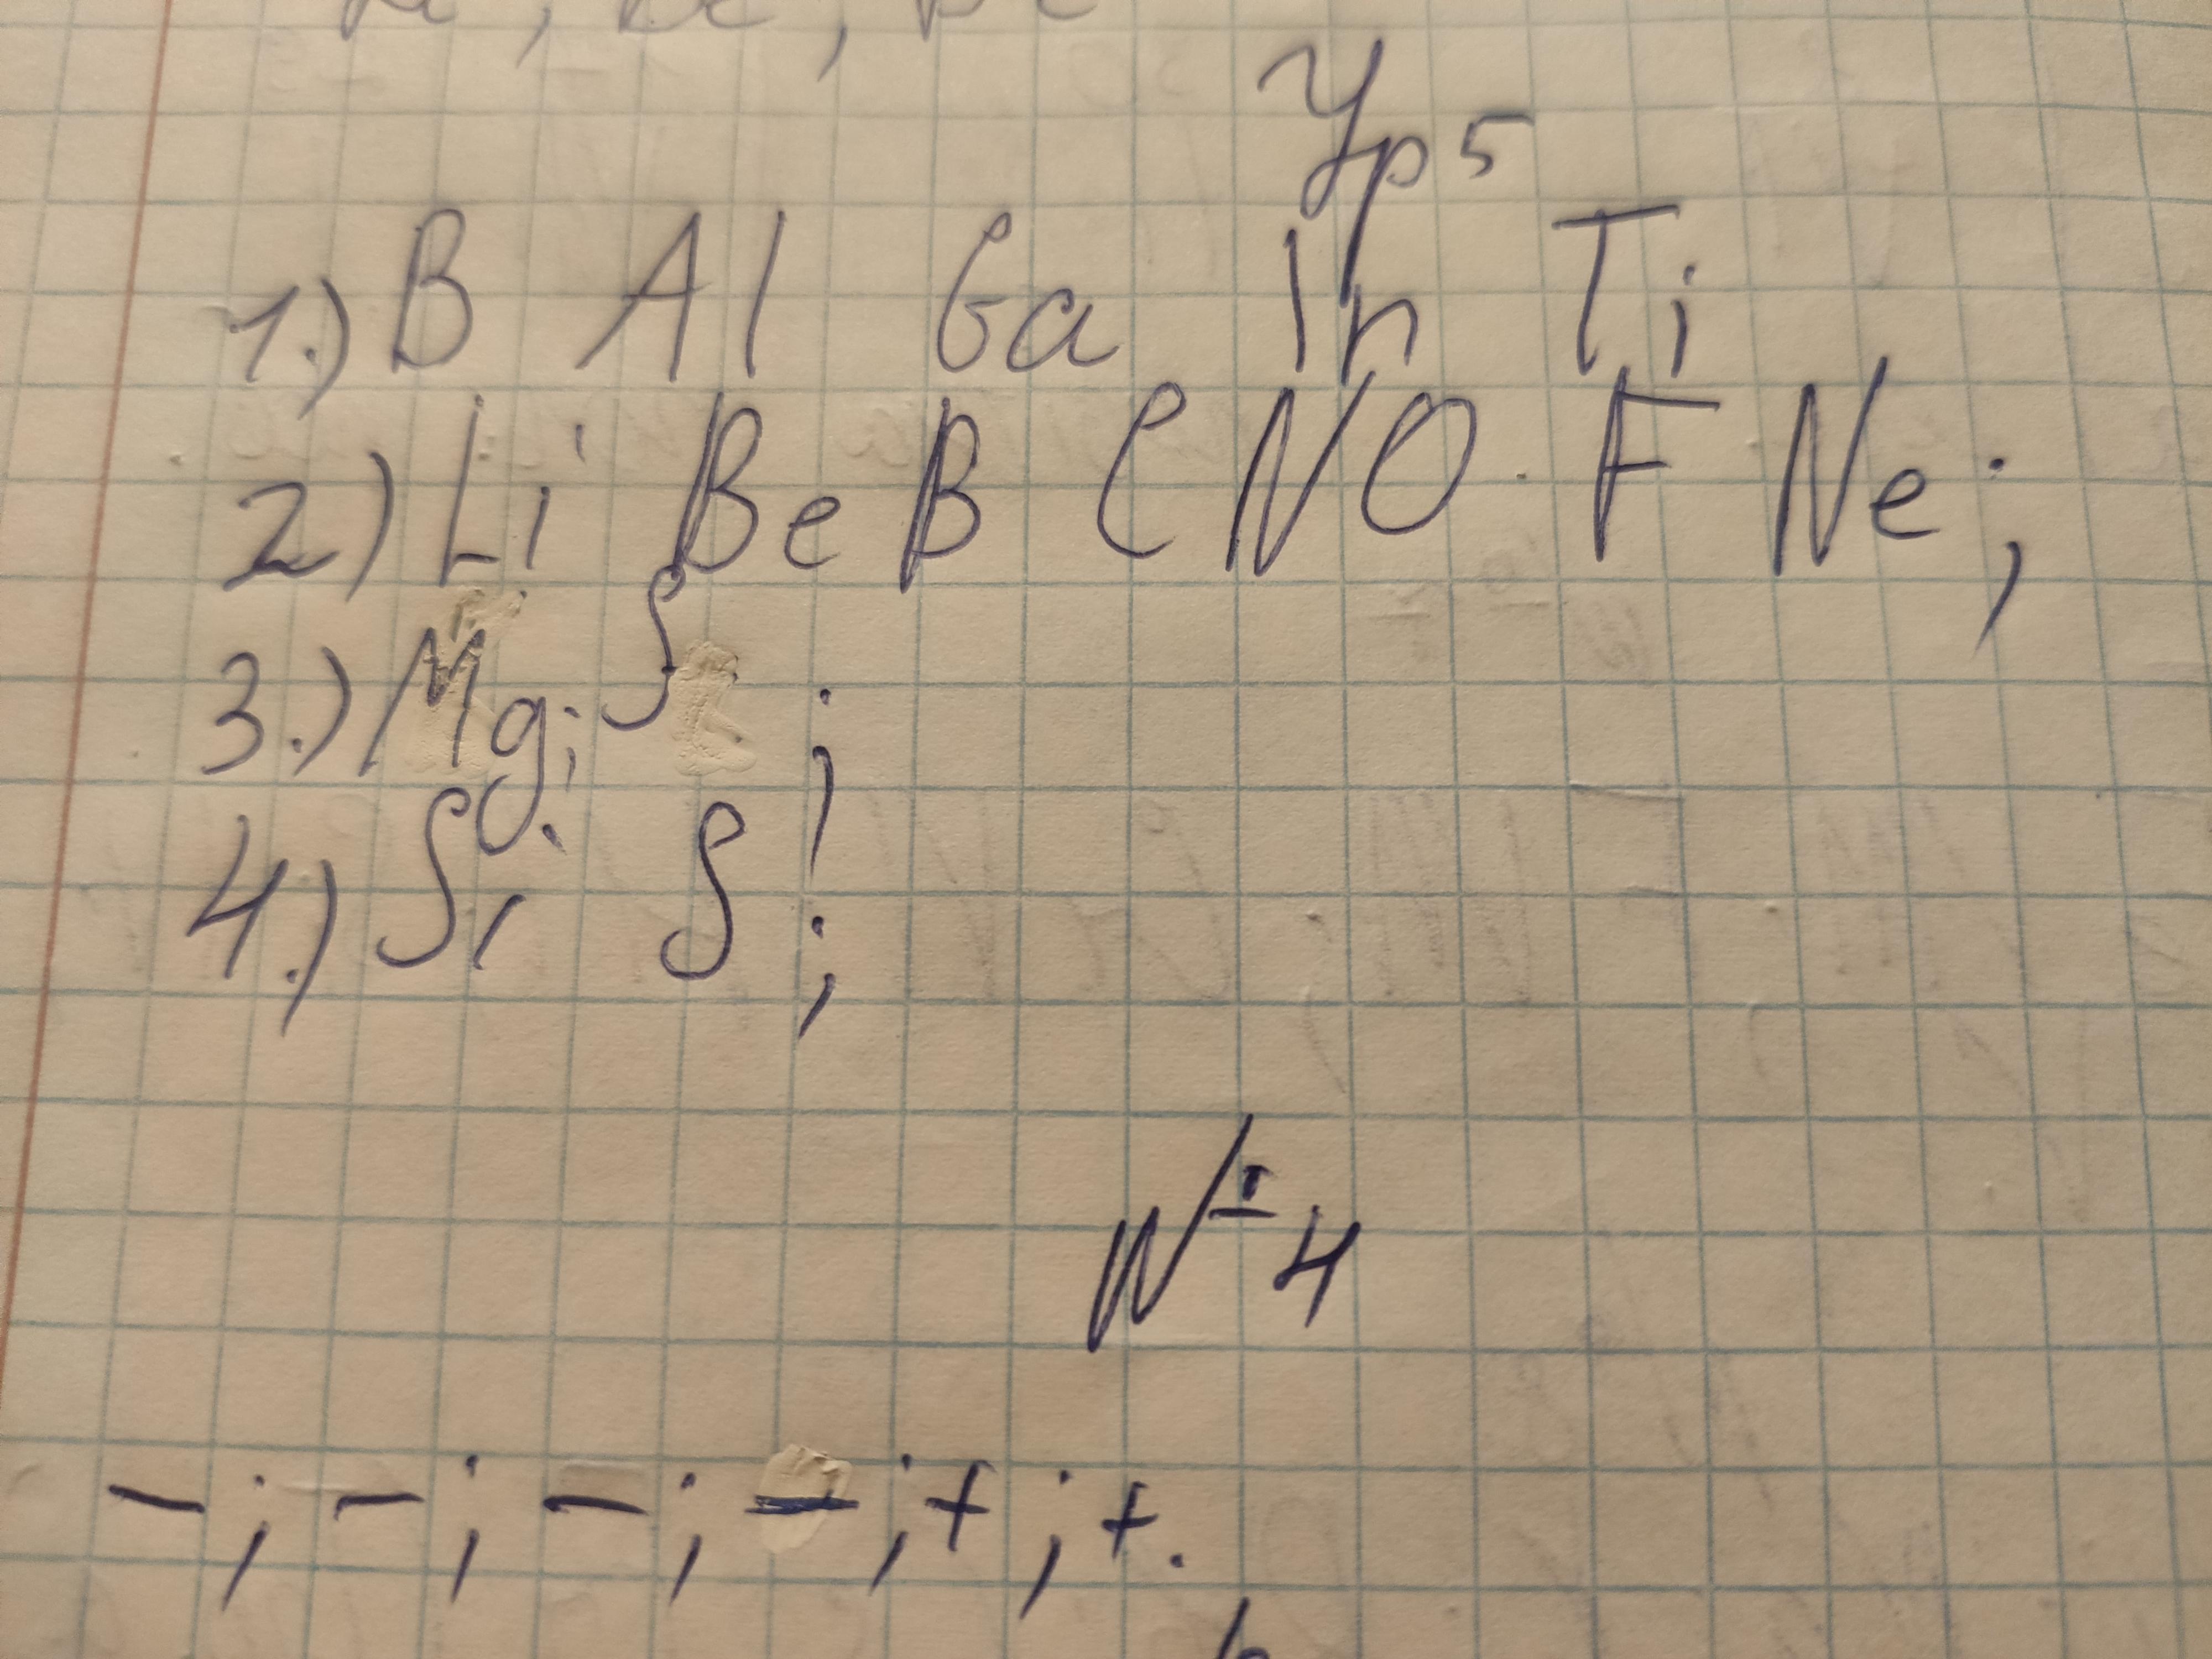 Ур 5
1.) B Al Ga In Ti
2) Li Be B C N O F Ne;
3.) Mg; S ;
4.) Si S ;
№ 4
– ; – ; – ; – ; + ; + .